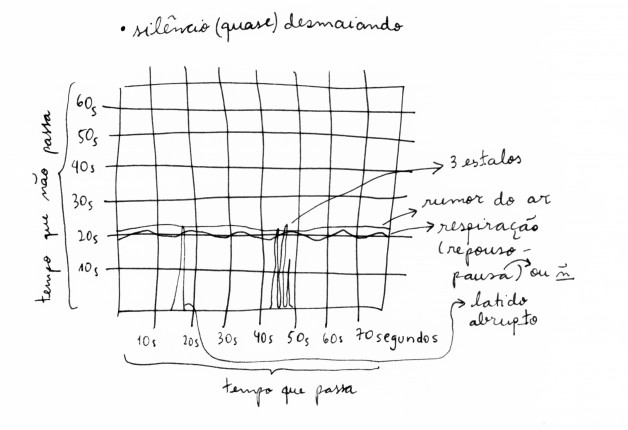 • silêncio (quase) desmaiando
tempo que não passa
60s
50s
40s
30s
20s
10s
3 estalos
rumor do ar
respiração
(repouso-
pausa) ou ñ
latido
abrupto
10s 20s 30s 40s 50s 60s 70 segundos
tempo que passa